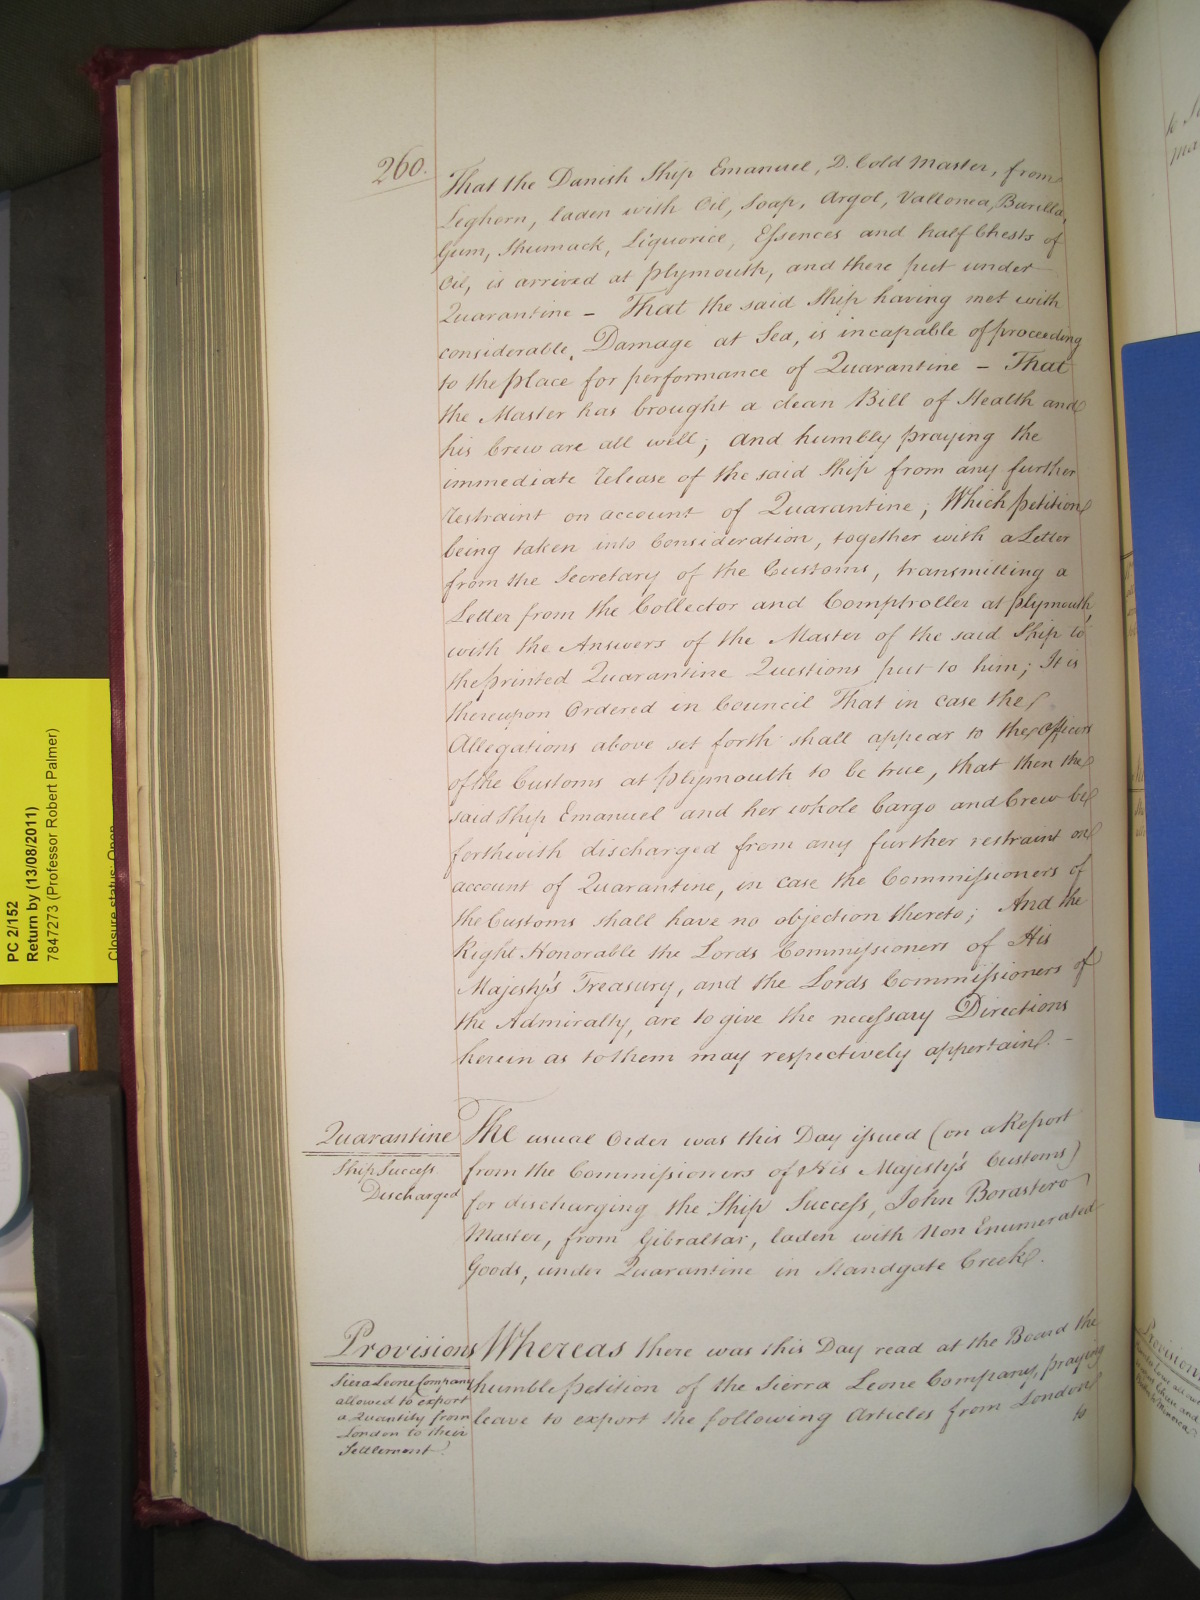 260.
That the Danish Ship Emanuel, D. Cold Master, from
Leghorn, laden with Oil, Soap, Argol, Vallonea, Barilla,
Gum, Shumack, Liquorice, Essences and half Chests of
Oil, is arrived at Plymouth, and there put under
Quarantine – That the said Ship having met with
considerable Damage at Sea, is incapable of proceeding
to the place for performance of Quarantine – That
the Master has brought a clean Bill of Health and
his Crew are all well; and humbly praying the
immediate release of the said Ship from any further
restraint on account of Quarantine; Which petition
being taken into Consideration, together with a Letter
from the Secretary of the Customs, transmitting a
Letter from the Collector and Comptroller at Plymouth,
with the Answers of the Master of the said Ship to
the printed Quarantine Questions put to him; It is
thereupon Ordered in Council That in case the
Allegations above set forth shall appear to the Officers
of the Customs at Plymouth to be true, that then the
said Ship Emanuel and her whole Cargo and Crew be
forthwith discharged from any further restraint on
account of Quarantine, in case the Commissioners of
the Customs shall have no objection thereto; And the
Right Honorable the Lords Commissioners of His
Majesty's Treasury, and the Lords Commissioners of
the Admiralty, are to give the necessary Directions
herein as to them may respectively appertain. –
Quarantine
Ship Success
Discharged
The usual Order was this Day issued (on a Report
from the Commissioners of His Majesty's Customs)
for discharging the Ship Success, John Borastero
Master, from Gibraltar, laden with Non Enumerated
Goods, under Quarantine in Standgate Creek.
Provisions
Siera Leone Company
allowed to export
a Quantity from
London to their
Settlement.
Whereas there was this Day read at the Board the
humble petition of the Sierra Leone Company, praying
leave to export the following Articles from London
to
PC 2/152
Return by (13/08/2011)
7847273 (Professor Robert Palmer)
Closure status: Open